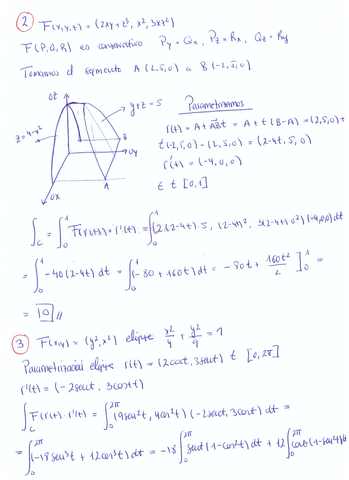 2) F(x,y,z) = (2xy+z³, x², 3xz²)
F(P,Q,R) es conservativo Py = Qx, Pz = Rx, Qz = Ry
Tomamos el segmento A(2,5,0) a B(-2,5,0)
OZ
y+z=5
z=4-x²
B
OY
A
OX
Parametrizamos
r(t) = A + ABt = A + t(B-A) = (2,5,0) +
t(-2,5,0) - (2,5,0) = (2-4t, 5, 0)
r'(t) = (-4,0,0)
t ∈ [0,1]
∫C = ∫₀¹ F(r(t))·r'(t) = ∫₀¹ (2(2-4t)·5, (2-4t)², 3(2-4t)0²)(-4,0,0)dt
= ∫₀¹ -40(2-4t) dt = ∫₀¹ (-80+160t) dt = -80t + 160t²/2 ]₀¹ =
= 0 //
3) F(x,y) = (y², x²) elipse x²/4 + y²/9 = 1
Parametrización elipse r(t) = (2cost, 3sent) t ∈ [0,2π]
r'(t) = (-2sent, 3cost)
∫C F(r(t))·r'(t) = ∫₀²π (9sen²t, 4cos²t)(-2sent, 3cost) dt =
= ∫₀²π (-18sen³t + 12cos³t) dt = -18∫₀²π sent(1-cos²t) dt + 12∫₀²π cost(1-sen²t)dt